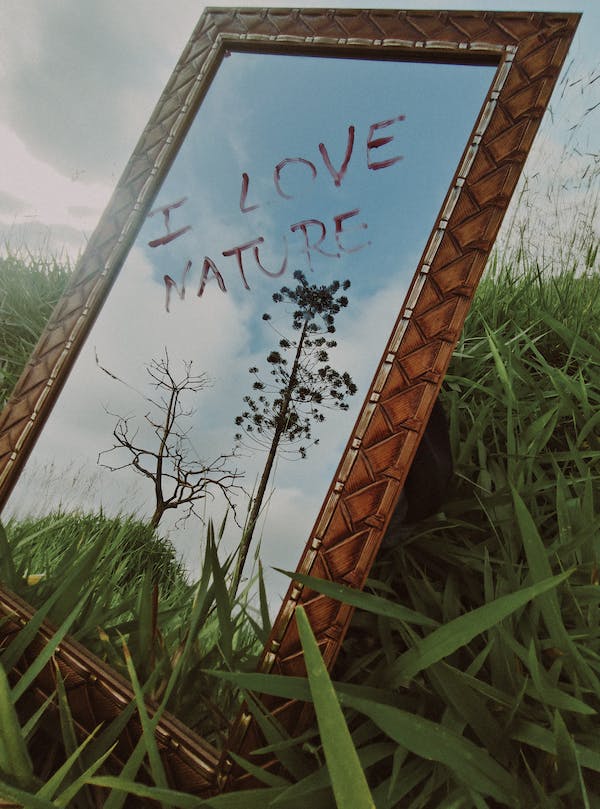 I LOVE
NATURE